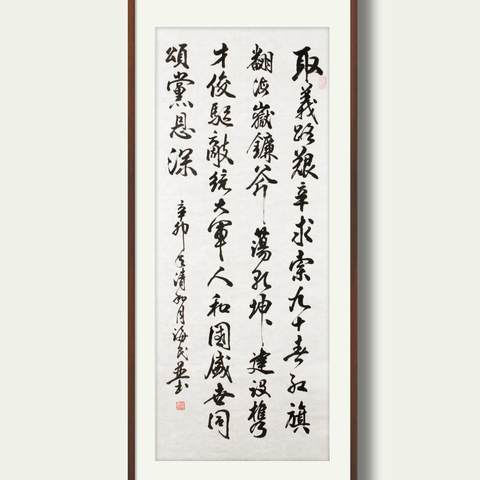 取義路艱辛求索九十春红旗
翻海嶽鐮斧蕩乾坤建設攜
才俊驅敵統大軍人和國盛世同
頌黨恩深
辛卯清和月海民並书